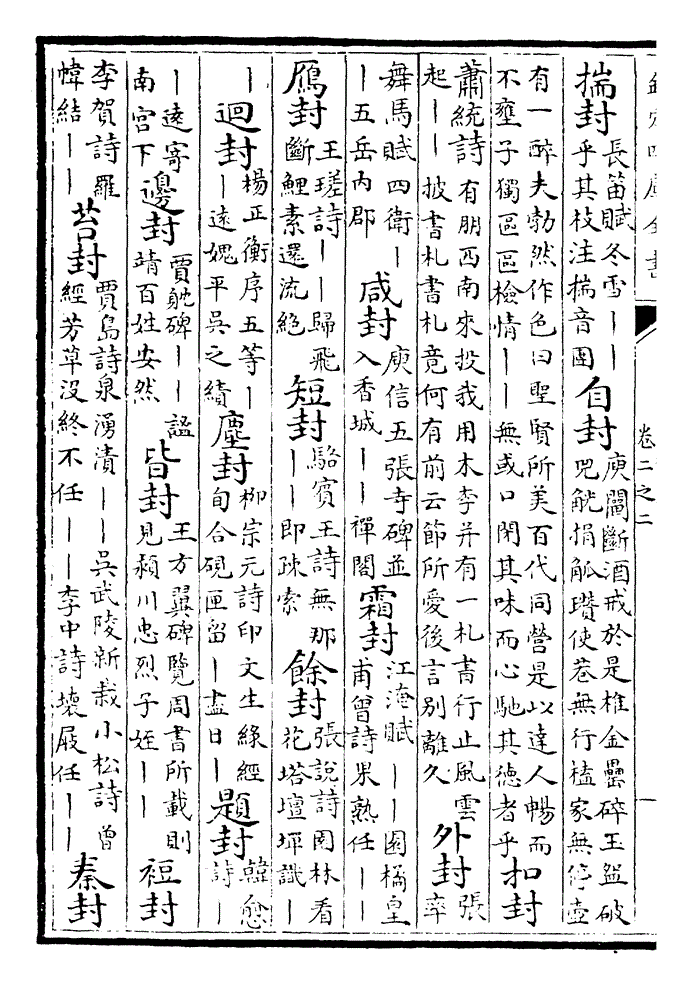 欽定四庫全書
卷二之二
揣封 長笛賦冬雪丨丨
乎其枝注揣音團
自封 庾闡斷酒戒於是椎金罍碎玉盌破
兕觥捐觚瓚使巷無行榼家無停壺
有一醉夫勃然作色曰聖賢所美百代同營是以達人暢而
不壅子獨區區檢情丨丨無或口閉其味而心馳其徳者乎
扣封
蕭統詩有朋西南來投我用木李并有一札書行止風雲
起丨丨披書札書札竟何有前云節所愛後言别離久
外封 張
率
舞馬賦四衛丨
丨五岳内郡
咸封 庾信五張寺碑並
入香城丨丨禪閣
霜封 江淹賦丨丨園橘皇
甫曾詩果熟任丨丨
鴈封 王瑳詩丨丨歸飛
斷鯉素還流絶
短封 駱賓王詩無那
丨丨即疎索
餘封 張說詩園林看
花塔壇墠識丨
丨
迴封 楊正衡序五等丨
丨遠媿平吳之績
塵封 柳宗元詩印文生緑經
旬合硯匣留丨盡日丨
題封 韓愈
詩丨
丨遠寄
南宫下
邊封 賈躭碑丨丨謐
靖百姓安然
皆封 王方翼碑覽周書所載則
見潁川忠烈子姪丨丨
封
李賀詩羅
幃結丨丨
苔封 賈島詩泉湧瀆丨丨吳武陵新栽小松詩曾
經芳草没終不任丨丨李中詩壊屐任丨丨
秦封